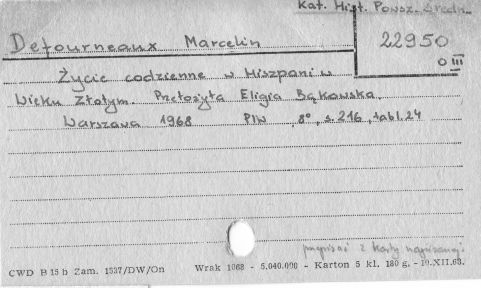 Kat. Hist. Powsz. Średn.
Defourneaux Marcelin
22950
0 III
Życie codzienne w Hiszpanii w
Wieku Złotym. Przełożyła Eligia Bąkowska.
Warszawa 1968 PIW, 8°, s. 216, tabl. 24
przepisać z karty napisanej
CWD B 15 b Zam. 1537/DW/On Wrak 1068 - 5.040.000 - Karton 5 kl. 180 g. - 19.XII.63.